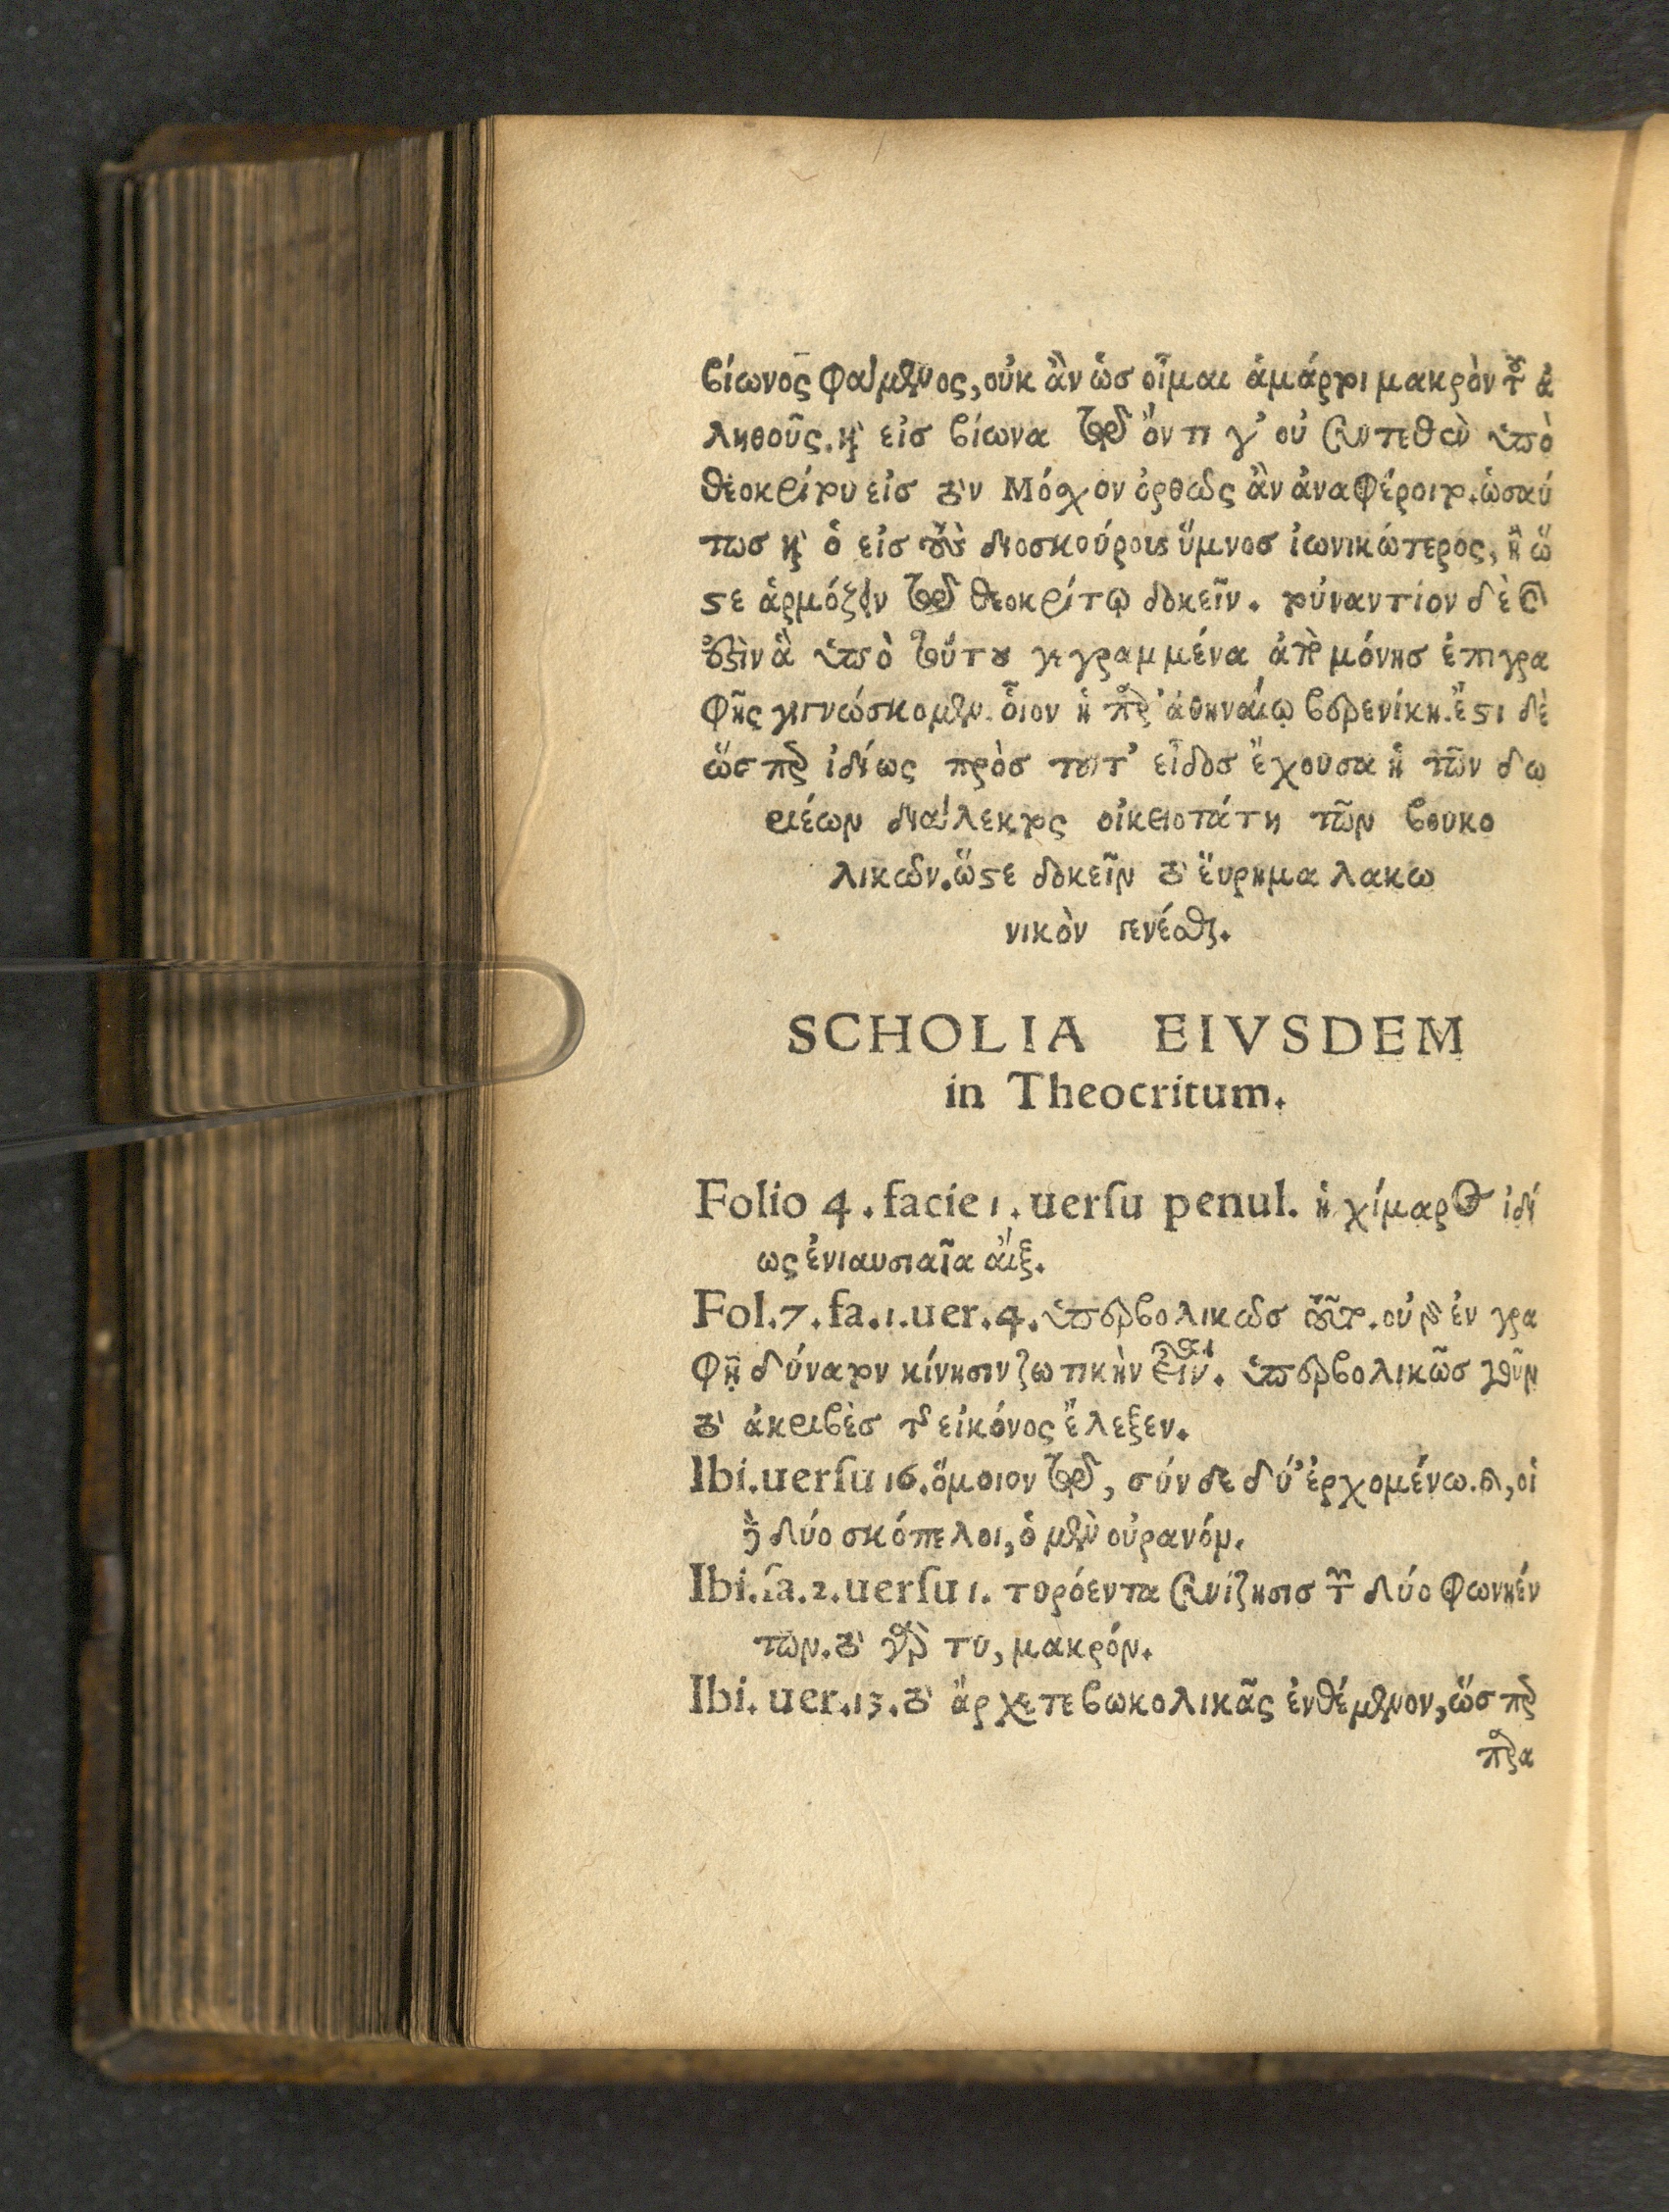 βίωνος φαίμενος, οὐκ ἂν ὡσ οἶμαι ἁμάρτοι μακρὸν τοῦ ἀ
ληθοῦς. καὶ εἰσ βίωνα τῶ ὄντι γ' οὐ συντεθὲν ὑπὸ
θεοκρίτου εἰσ τὸν Μόσχον ὀρθῶς ἂν ἀναφέροιτο. ὡσαύ
τωσ καὶ ὁ εἰσ τοὺς διοσκούρους ὕμνοσ ἰωνικώτερος, ἢ ὥ
στε ἁρμόζειν τῶ θεοκρίτῳ δοκεῖν. τοὐναντίον δὲ
ἐστὶν ἃ ὑπὸ τούτου γεγραμμένα ἀπὸ μόνησ ἐπιγρα
φῆς γιγνώσκομεν. οἷον ἡ παρ' ἀθηναίῳ βερενίκη. ἔστι δὲ
ὥσπερ ἰδίως πρὸσ τοῦτ' εἶδοσ ἔχουσα ἡ τῶν δω
ριέων διάλεκτος οἰκειοτάτη τῶν βουκο
λικῶν. ὥστε δοκεῖν τὸ εὕρημα λακω
νικὸν γενέσθαι.
SCHOLIA EIVSDEM
in Theocritum.
Folio 4. facie 1. uersu penul. ἡ χίμαρος ἰδί
ως ἐνιαυσιαῖα αἴξ.
Fol. 7. fa. 1. uer. 4. ὑπερβολικῶσ τοῦτο. οὐ γὰρ ἐν γρα
φῇ δύνατον κίνησιν ζωτικὴν εἶναι. ὑπερβολικῶσ γοῦν
τὸ ἀκριβὲσ τῆς εἰκόνος ἔλεξεν.
Ibi. uersu 16. ὅμοιον τῶ, σύν δε δύ' ἐρχομένω. καὶ, οἱ
δὲ δύο σκόπελοι, ὁ μὲν οὐρανόν.
Ibi. fa. 2. uersu 1. τυρόεντα συνίζησισ τῶν δύο φωνηέν
των. τὸ γὰρ τυ, μακρόν.
Ibi. uer. 13. τὸ ἄρχετε βωκολικᾶς ἐνθέμενον, ὥσπερ
παρα